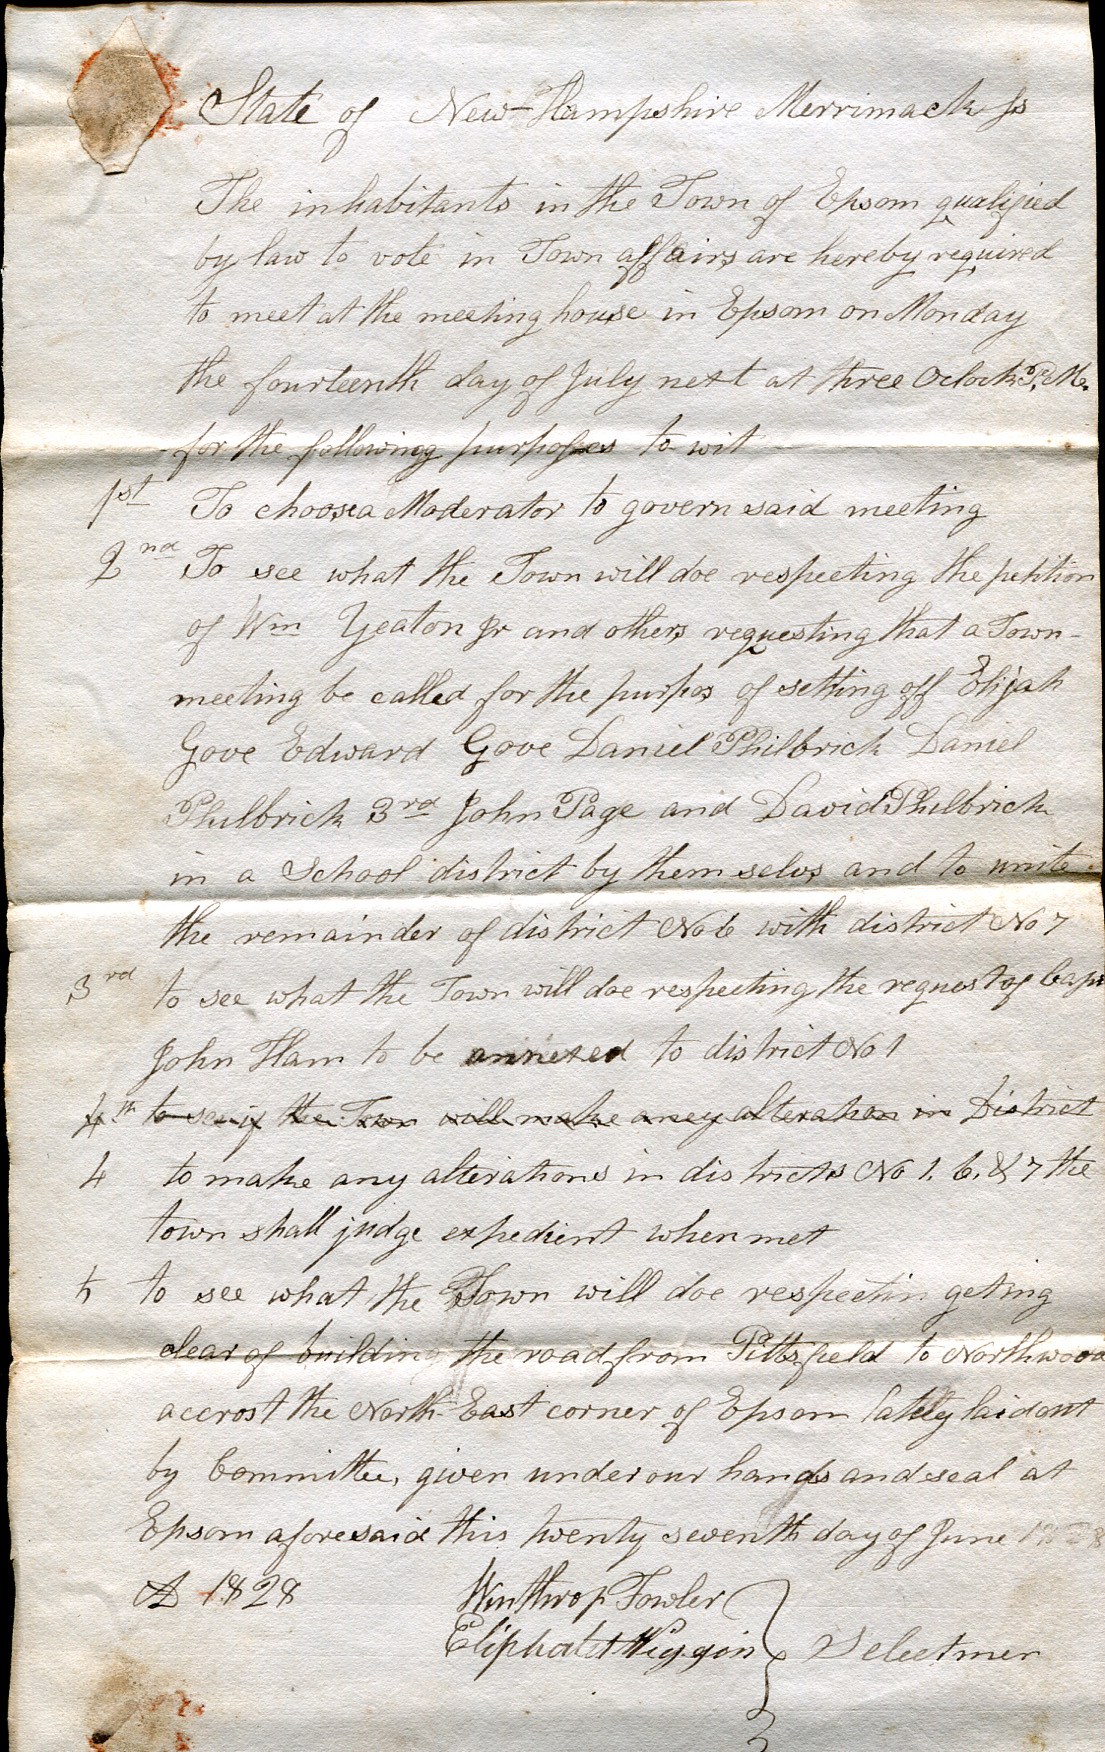 State of New-Hampshire Merrimack Ss
The inhabitants in the Town of Epsom qualified
by law to vote in Town affairs are hereby required
to meet at the meeting house in Epsom on Monday
the fourteenth day of July next at three Oclock P.M.
for the following purposes to wit
1st To choose a Moderator to govern said meeting
2nd To see what the Town will doe respecting the petition
of Wm Yeaton Jr and others requesting that a Town-
meeting be called for the purpos of setting off Elijah
Gove Edward Gove Daniel Philbrick Daniel
Philbrick 3rd John Page and David Philbrick
in a School district by them selvs and to unite
the remainder of district No 6 with district No 7
3rd to see what the Town will doe respecting the request of Capt
John Ham to be annexed to district No 1
4th to see if the Town will make aney alteration in District
4 to make any alterations in districts No 1. 6. & 7 the
town shall judge expedient when met
5 to see what the Town will doe respectin geting
clear of building the road from Pittsfield to Northwood
accrost the North-East corner of Epsom lately laid out
by Committee, given under our hands and seal at
Epsom aforesaid this twenty seventh day of June 1828
AD 1828 Winthrop Fowler
Eliphalet Wiggin Selectmen